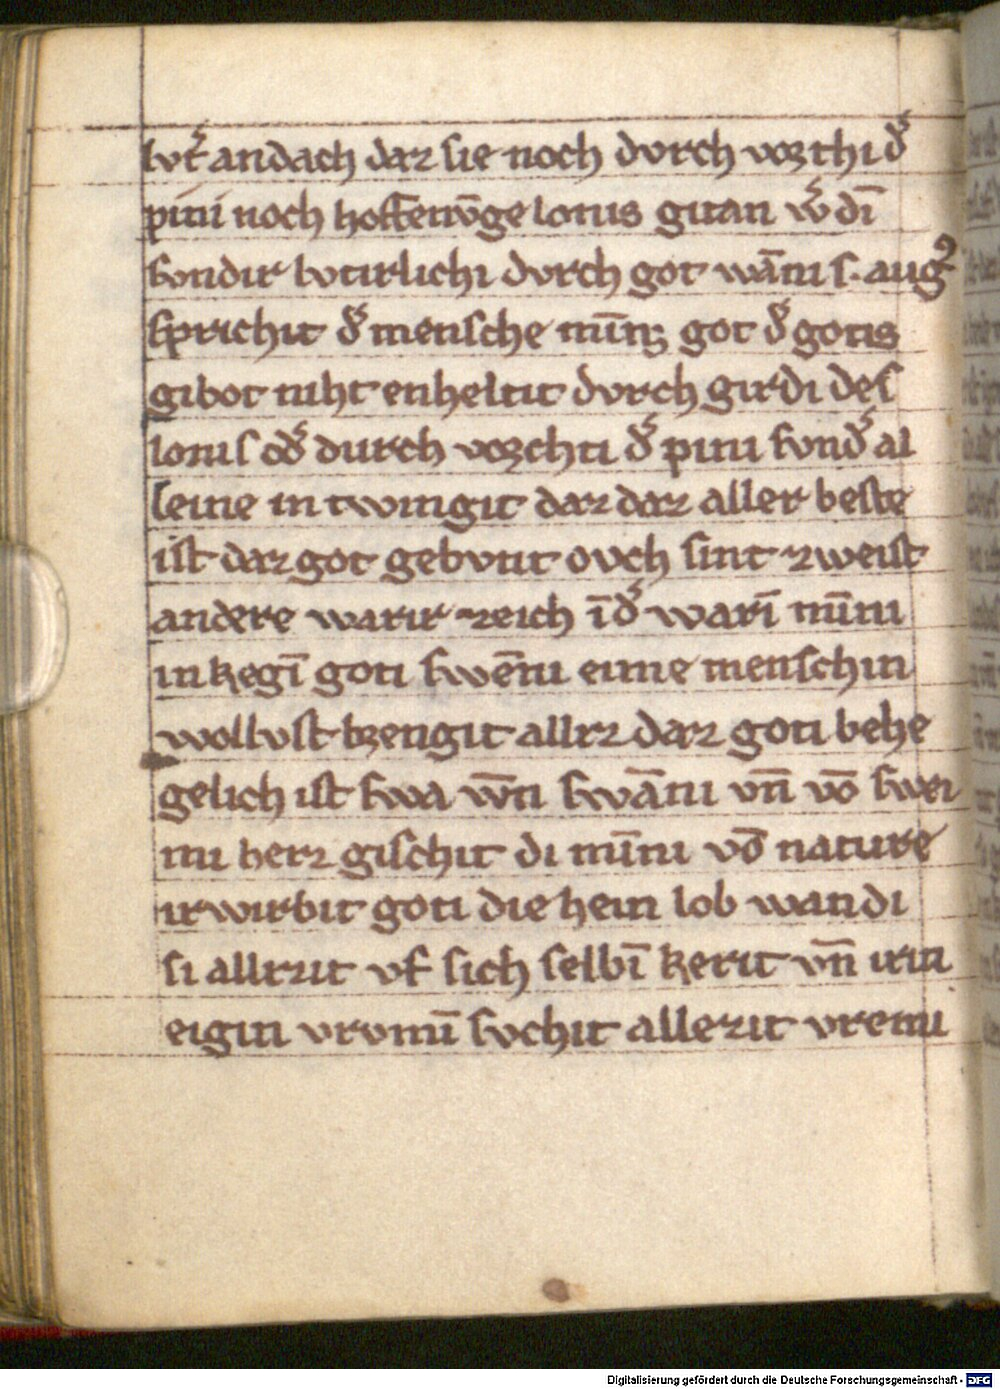 lvt͛ andach daz sie noch dvrch vorthi d͛
pini noch hoffenv̄ge lonis gitan w͛dī
svndir lvtirlichi dvrch got wāni s. augꝰ
sprichit d͛ mensche mīn̄ꝫ got d͛ gotis
gibot niht enheltit dvrch girdi des
lonis od͛ durch vorchti d͛ pini svnd͛ al
leine in twingit daz daz aller beste
ist daz got gebvtit ovch sint zweist
andere warir zeich ī d͛ warī mīni
in kegī goti swēni eime menschin
wollvst bꝛengit allez daz goti behe
gelich ist swa w̄ti swāni vn̄ vō swei
mi herz gischit di mīni vō nature
irwirbit goti die hein lob wandi
si allizit vf sich selbī kerit vn̄ irin
eigin vromī svchit allezit vremi
Digitalisierung gefördert durch die Deutsche Forschungsgemeinschaft - DFG